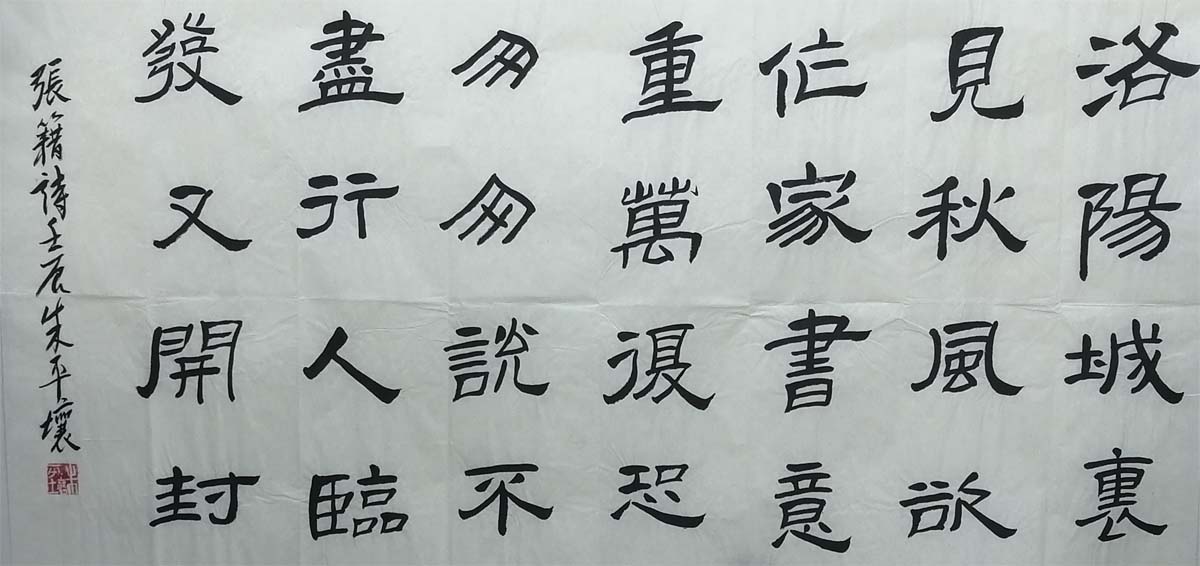 洛陽城裏
見秋風欲
作家書意
重萬復恐
匆匆說不
盡行人臨
發又開封
張籍詩壬辰朱平壤